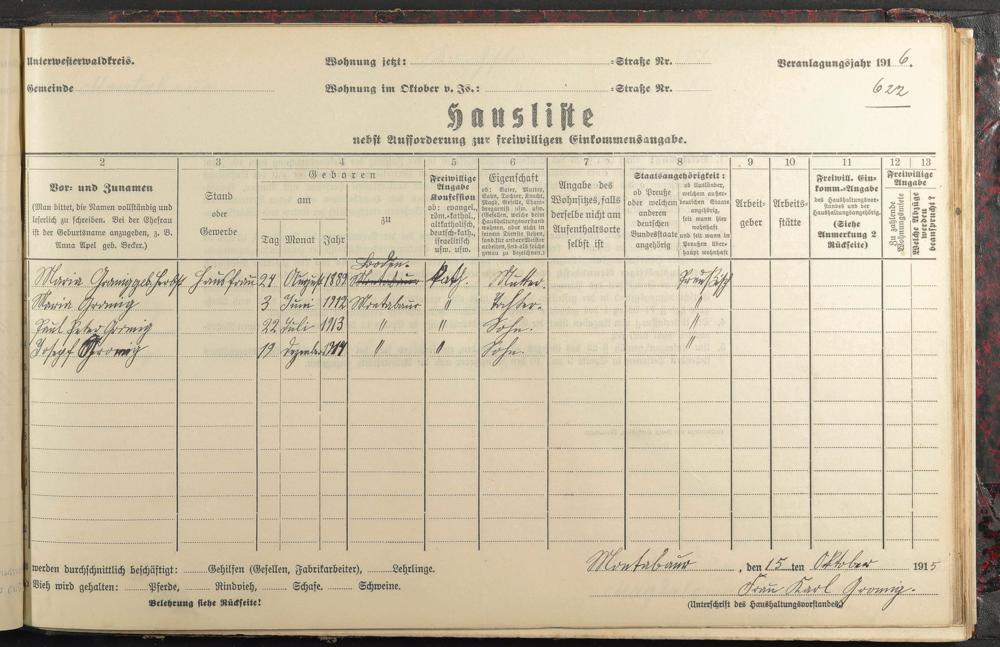 Unterwesterwaldkreis. Wohnung jetzt: =Straße Nr. Veranlagungsjahr 1916.
Gemeinde Wohnung im Oktober v. Js.: =Straße Nr. 622
Hausliste
nebst Aufforderung zur freiwilligen Einkommensangabe.
2 3 4 5 6 7 8 9 10 11 12 13
Vor- und Zunamen
(Man bittet, die Namen vollständig und
leserlich zu schreiben. Bei der Ehefrau
ist der Geburtsname anzugeben, z. B.
Anna Apel geb. Becker.)
Stand
oder
Gewerbe
Geboren
am
zu
Tag Monat Jahr
Freiwillige
Angabe
Konfession
ob: evangel.,
röm.-kathol.,
altkatholisch,
deutsch-kath.,
israelitisch
usw. usw.
Eigenschaft
ob: Vater, Mutter,
Sohn, Tochter, Knecht,
Magd, Geselle,
genau zu bezeichnen).
Angabe des
Wohnsitzes, falls
derselbe nicht am
Aufenthaltsorte
selbst ist
Staatsangehörigkeit:
ob Preuße
oder welchem
anderen
deutschen
Bundesstaate
angehörig
ob Ausländer,
welchem außer-
deutschen Staate
angehörig,
seit wann hier
wohnhaft
und seit wann in
Preußen über-
haupt wohnhaft
Arbeit-
geber
Arbeits-
stätte
Freiwill. Ein-
komm.-Angabe
des Haushaltungsvor-
standes und der
Haushaltungsangehörig.
(Siehe
Anmerkung 2
Rückseite)
Freiwillige
Angabe
Zu zahlende
Wohnungsmiete
Welche Abzüge
werden
beansprucht?
Boden-
Maria Gromig geb. Herbst Hausfrau 24 August 1882 Montabaur kath. Mutter. Preußisch
Maria Gromig 3 Juni 1912 Montabaur " Tochter. "
Paul Peter Gromig 22 Juli 1913 " " Sohn. "
Josepf Gromig 19 Dezember 1914 " " Sohn. "
werden durchschnittlich beschäftigt: Gehilfen (Gesellen, Fabrikarbeiter), Lehrlinge.
Vieh wird gehalten: Pferde, Rindvieh, Schafe. Schweine.
Belehrung siehe Rückseite!
Montabaur, den 15 ten Oktober 1915
Frau Karl Gromig.
(Unterschrift des Haushaltungsvorstandes)